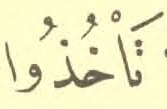 تَأْخُذُوا